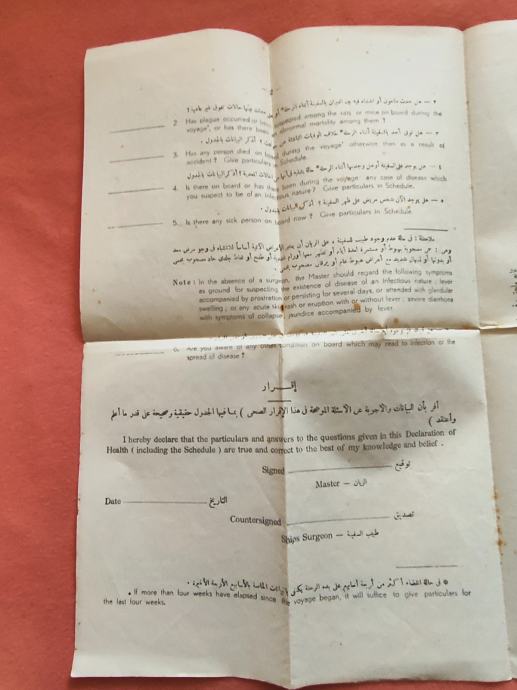 2
٢ — هل حدث طاعون أو اشتباه فيه بين الفيران بالسفينة أثناء الرحلة* أو هل حدثت بينها حالات تفوق غير عادية ؟
2. Has plague occurred or been suspected among the rats or mice on board during the
voyage*, or has there been an abnormal mortality among them ?
٣ — هل توفى أحد بالسفينة أثناء الرحلة* بخلاف الوفيات الناتجة عن ؟ أذكر البيانات بالجدول .
3. Has any person died on board during the voyage* otherwise than as a result of
accident ? Give particulars in Schedule.
٤ — هل يوجد على السفينة أو هل وجد بها أثناء الرحلة* حالة معدية ؟ أذكر البيانات بالجدول
4. Is there on board or has there been during the voyage any case of disease which
you suspect to be of an infectious nature ? Give particulars in Schedule.
٥ — هل يوجد الآن شخص مريض على ظهر السفينة ؟ أذكر البيانات بالجدول .
5. Is there any sick person on board now ? Give particulars in Schedule.
ملاحظة : فى حالة عدم وجود طبيب للسفينة ، على الربان أن يعتبر الأعراض الآتية أساساً للاشتباه فى وجود مرض معد
وهى : حمى مصحوبة بهبوط أو مستمرة لعدة أيام أو
Note : In the absence of a surgeon, the Master should regard the following symptoms
as ground for suspecting the existence of disease of an infectious nature : fever
accompanied by prostration or persisting for several days, or attended with glandular
swelling ; or any acute skin rash or eruption with or without fever ; severe diarrhoea
with symptoms of collapse, jaundice accompanied by fever.
6. Are you aware of any other condition on board which may lead to infection or the
spread of disease ?
إقرار
أقر بأن البيانات والاجوبة عن الأسئلة الموضحة فى هذا الإقرار الصحى ( بما فيها الجدول حقيقية وصحيحة على قدر ما أعلم
وأعتقد )
I hereby declare that the particulars and answers to the questions given in this Declaration of
Health ( including the Schedule ) are true and correct to the best of my knowledge and belief .
Signed توقيع
Master — الربان
Date التاريخ
Countersigned تصديق
Ships Surgeon — طبيب السفينة
* فى حالة انقضاء أكثر من أربعة أسابيع على بدء الرحلة يكفى بيانات الخاصة بالأسابيع الأربعة الأخيرة .
* If more than four weeks have elapsed since the voyage began, it will suffice to give particulars for
the last four weeks.